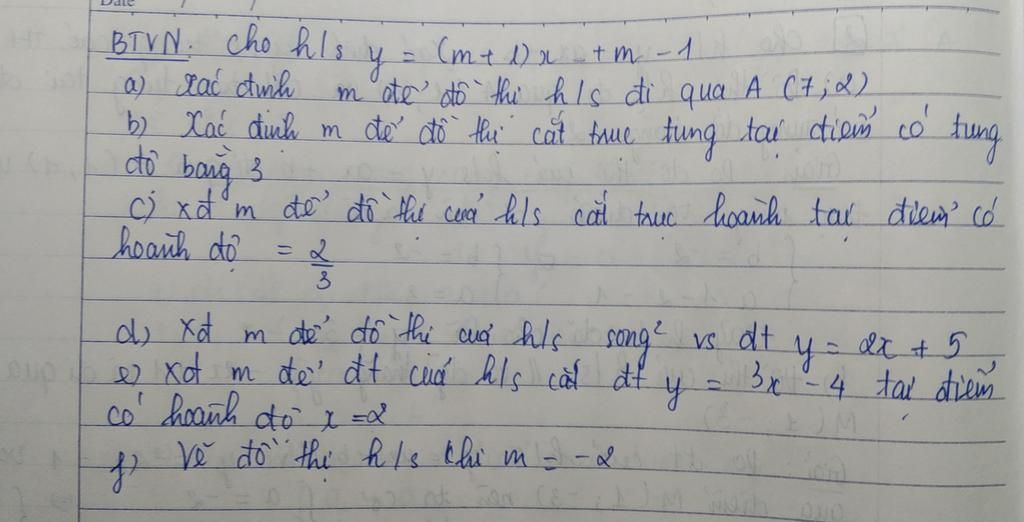 Date
BTVN. Cho h/s y = (m + 1)x + m - 1
a) Xác định m để đồ thị h/s đi qua A (7; 2)
b) Xác định m để đồ thị cắt trục tung tại điểm có tung
độ bằng 3
c) xđ m để đồ thị của h/s cắt trục hoành tại điểm có
hoành độ = 2/3
d) Xđ m để đồ thị của h/s song² vs đt y = 2x + 5
e) Xđ m để đt của h/s cắt đt y = 3x - 4 tại điểm
có hoành độ x = 2
f) Vẽ đồ thị h/s khi m = -2